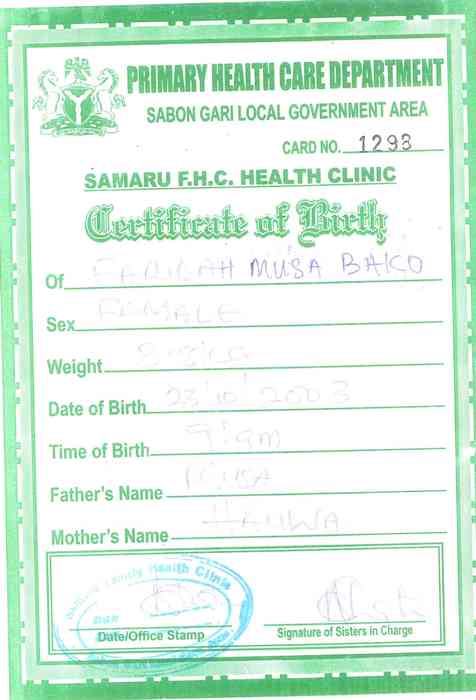 PRIMARY HEALTH CARE DEPARTMENT
SABON GARI LOCAL GOVERNMENT AREA
CARD NO. 1293
SAMARU F.H.C. HEALTH CLINIC
Certificate of Birth
Of MUSA BAKO
Sex FEMALE
Weight
Date of Birth 23/10/2003
Time of Birth 9:am
Father's Name MUSA
Mother's Name HAUWA
Family Health Clinic
Date/Office Stamp
Signature of Sisters in Charge